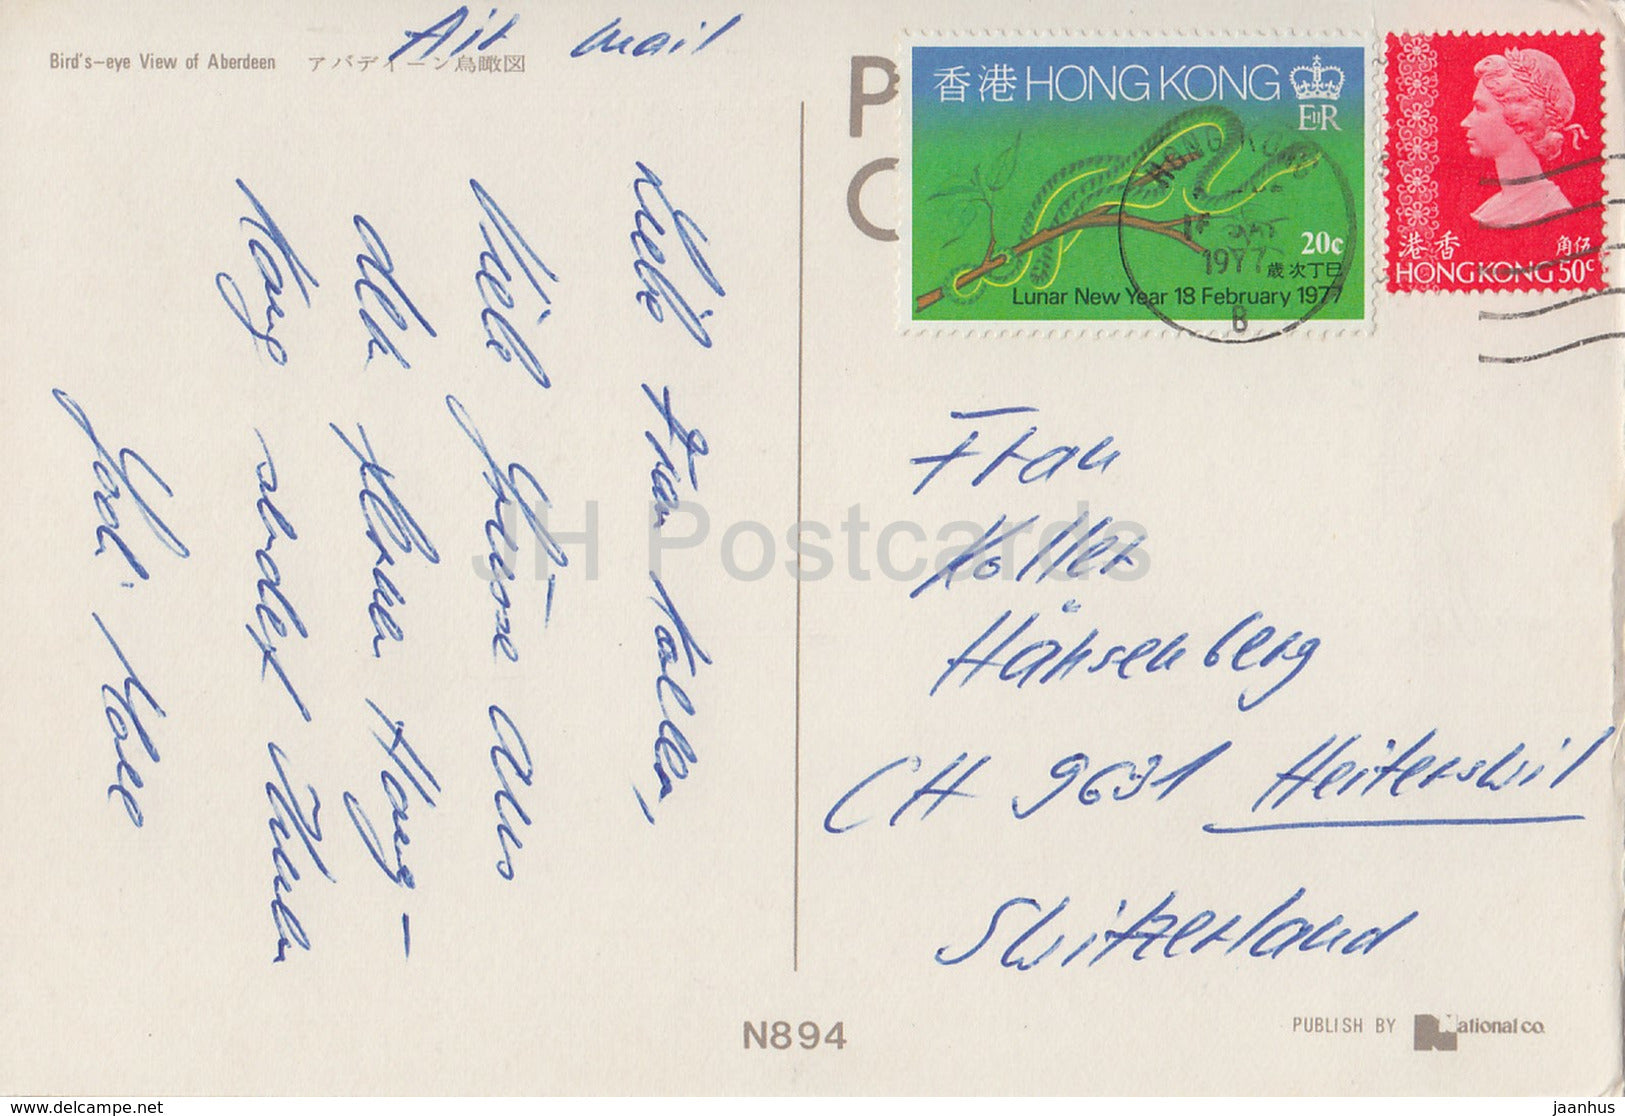 Air mail
Bird's-eye View of Aberdeen アバディーン鳥瞰図
P
O
香港 HONG KONG
EIIR
20c
歲次丁巳
Lunar New Year 18 February 1977
HONG KONG
1977
B
港香 角伍
HONG KONG 50c
Liebe Frau Koller,
Viele Grüsse aus
dem fernen Hong-
Kong sendet Ihnen
Frau
Koller
Hänsenberg
CH 9631 Heiterswil
Switzerland
JH Postcards
N894
PUBLISH BY National co.
www.delcampe.net
jaanhus